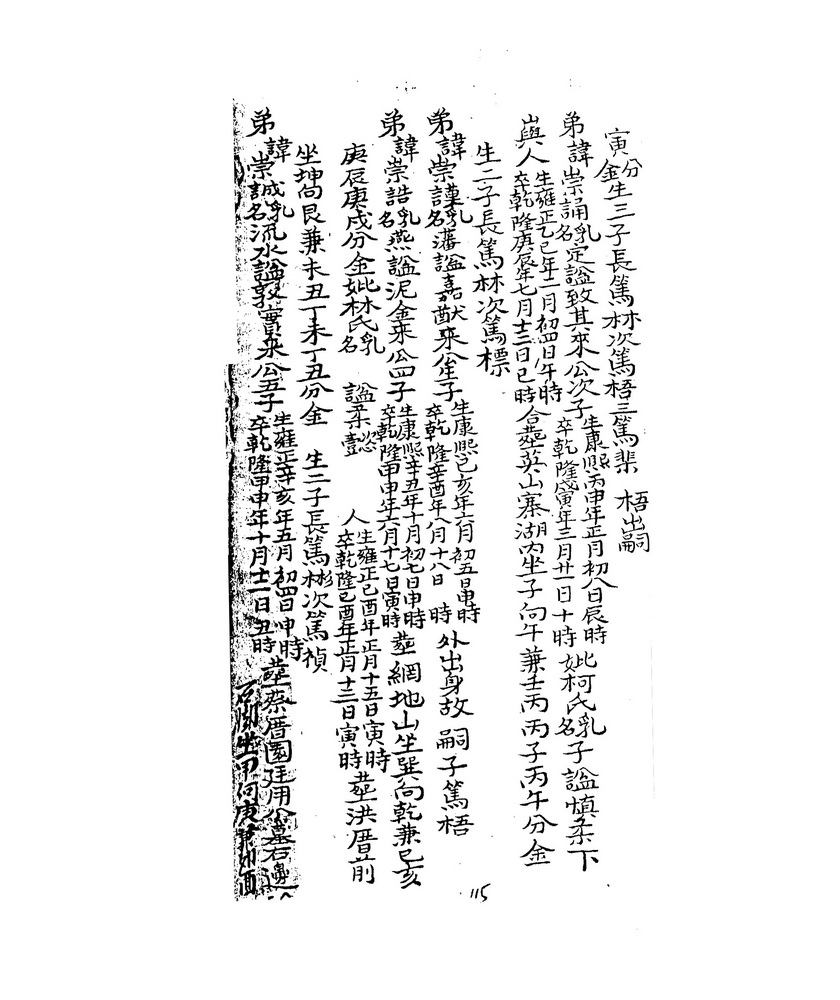 寅分金生三子長篤林次篤梧三篤棐 梧出嗣
弟諱崇誦乳名定謚致其來公次子生康熙丙申年正月初八日辰時卒乾隆戊寅年三月廿一日十時妣柯氏乳名子謚慎柔下
生雍正乙巳年二月初四日午時卒乾隆庚辰年七月十三日巳時合塟英山寨湖內坐子向午兼壬丙丙子丙午分金
與人
生二子長篤林次篤標
弟諱崇謹乳名藩謚嘉猷來公長子生康熙己亥年六月初五日申時卒乾隆辛酉年八月十八日 時外出身故 嗣子篤梧
弟諱崇誥乳名燕謚泥金來公四子生康熙辛丑年十月初七日申時卒乾隆甲申年六月十七日寅時塟網地山坐巽向乾兼巳亥
庚辰庚戌分金妣林氏乳名 謚柔懿 人生雍正己酉年正月十五日寅時卒乾隆己酉年正月十三日寅時塟洪厝前
坐坤向艮兼未丑丁未丁丑分金 生二子長篤彬次篤禎
弟諱崇誠乳名流水謚敦實來公五子生雍正辛亥年五月初四日申時卒乾隆甲申年十月十一日丑時塟蔡厝園廷用公墓右邊
石脚坐甲向庚
115